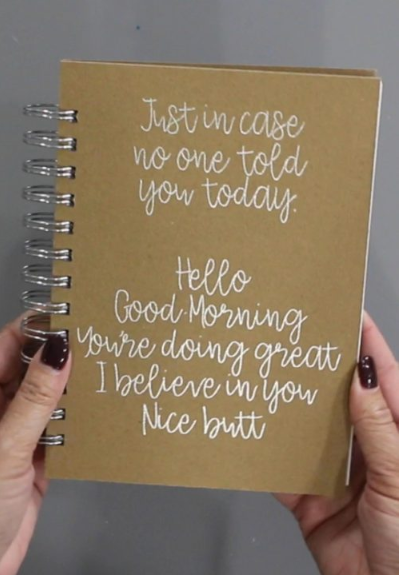 Just in case
no one told
you today.
Hello
Good Morning
You're doing great
I believe in you
Nice butt